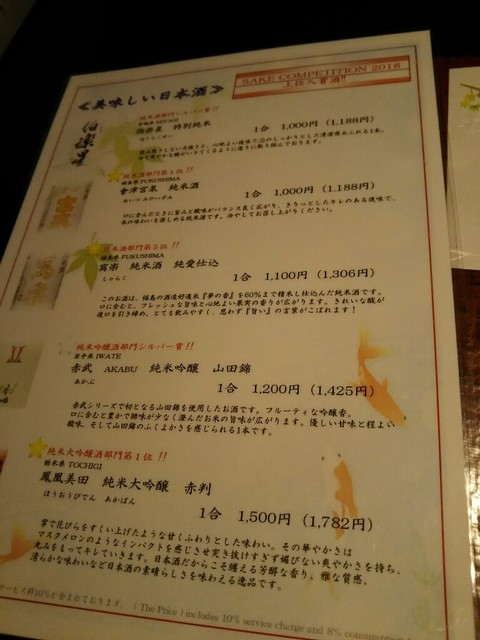 ≪美味しい日本酒≫
SAKE COMPETITION 2018
上位入賞酒!!
純米酒部門シルバー賞!!
宮城県 MIYAGI
伯楽星 特別純米
はくらくせい
1合 1,000円 (1,188円)
純米酒部門第1位!!
福島県 FUKUSHIMA
會津宮泉 純米酒
あいづ みやいずみ
1合 1,000円 (1,188円)
口に含んだときに旨みと酸味がバランス良く広がり、きりっとしたキレのある後味で、
米の味わいを楽しめる純米酒です。冷やしてお召し上がりください。
純米酒部門第5位!!
福島県 FUKUSHIMA
寫楽 純米酒 純愛仕込
しゃらく
1合 1,100円 (1,306円)
このお酒は、福島の酒造好適米『夢の香』を60%まで精米し仕込んだ純米酒です。
口に含むと、フレッシュな旨味と心地よい果実の香りが広がります。きれいな酸が
後口を引き締め、とても飲みやすく、思わず『旨い』の言葉がこぼれます!
純米吟醸酒部門シルバー賞!!
岩手県 IWATE
赤武 AKABU 純米吟醸 山田錦
あかぶ
1合 1,200円 (1,425円)
赤武シリーズで初となる山田錦を使用したお酒です。フルーティな吟醸香。
口に含むと豊かで雑味が少なく澄んだお米の旨味が広がります。優しい甘味と程よい
酸味、そして山田錦のふくよかさを感じられる1本です。
純米大吟醸酒部門第1位!!
栃木県 TOCHIGI
鳳凰美田 純米大吟醸 赤判
ほうおうびでん あかばん
1合 1,500円 (1,782円)
掌で花びらをすくい上げたような甘くふわりとした味わい。その華やかさは
マスクメロンのようなインパクトを感じさせ突き抜けすぎず媚びない爽やかさを持ち、
丸みをもってキレていきます。日本酒だからこそ纏える芳醇な香り、雅な質感、
清らかな味わいなど日本酒の素晴らしさを味わえる逸品です。
サービス料10%が含まれております。 ( The Price ) includes 10% service charge and 8%